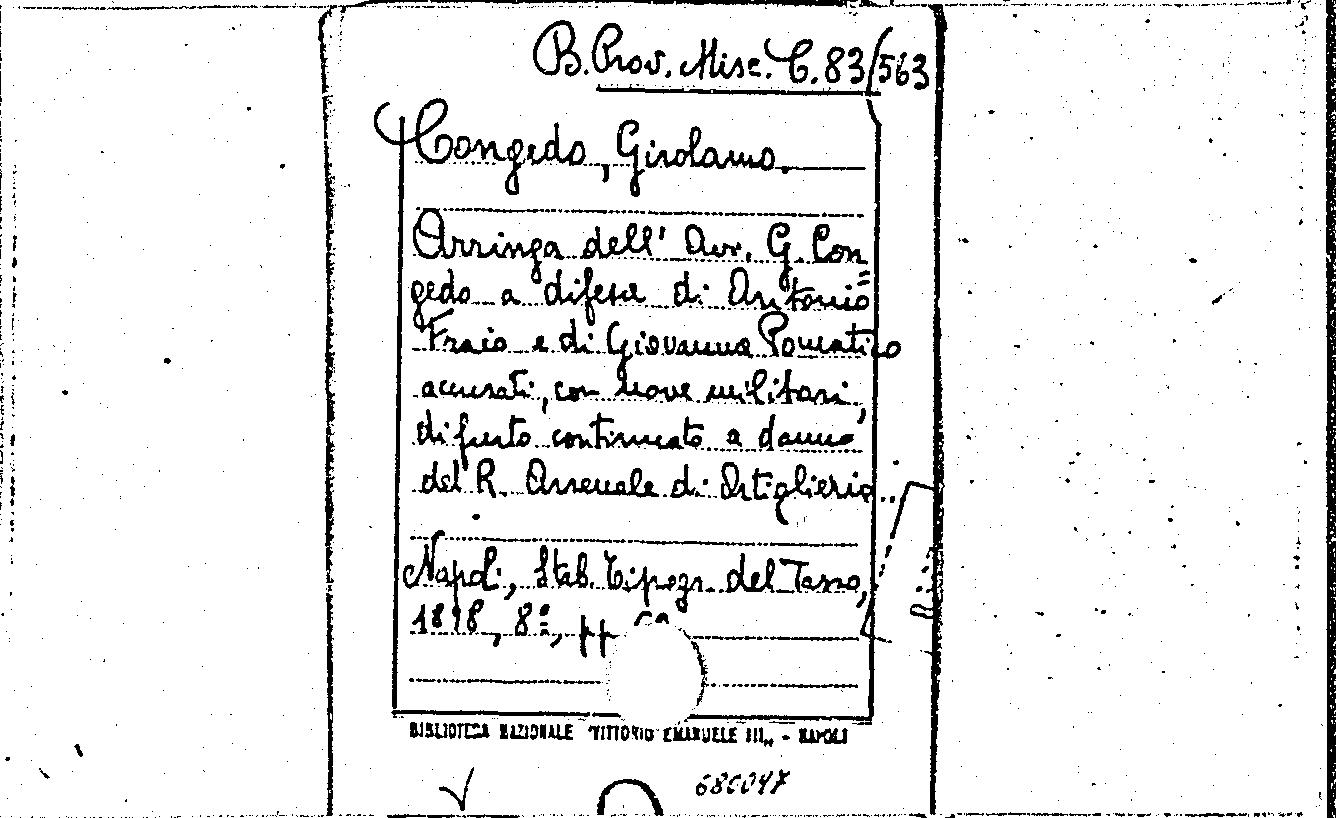 B. Prov. Misc. C. 83/563
Congedo, Girolamo.
Arringa dell' Avv. G. Con=
gedo a difesa di Antonio
Fraio e di Giovanna Pomatico
accusati, con nove militari,
di furto continuato a danno
del R. Arsenale di Artiglieria...
Napoli, Stab. Tipogr. del Tasso,
1898, 8º, pp.
BIBLIOTECA NAZIONALE "VITTORIO EMANUELE III„ - NAPOLI
680047